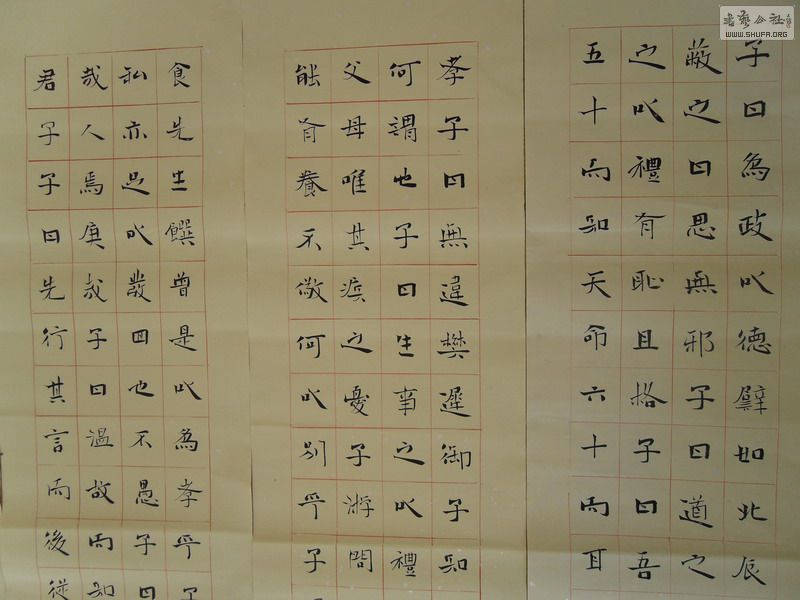 子曰為政以德譬如北辰
蔽之曰思無邪子曰道之
之以禮有恥且格子曰吾
五十而知天命六十而耳
孝子曰無違樊遲御子
何謂也子曰生事之以禮
父母唯其疾之憂子游問
能有養不敬何以別乎子
食先生饌曾是以為孝乎子
私亦足以發回也不愚子曰
哉人焉廋哉子曰溫故而知
君子子曰先行其言而後從
書藝公社
WWW.SHUFA.ORG